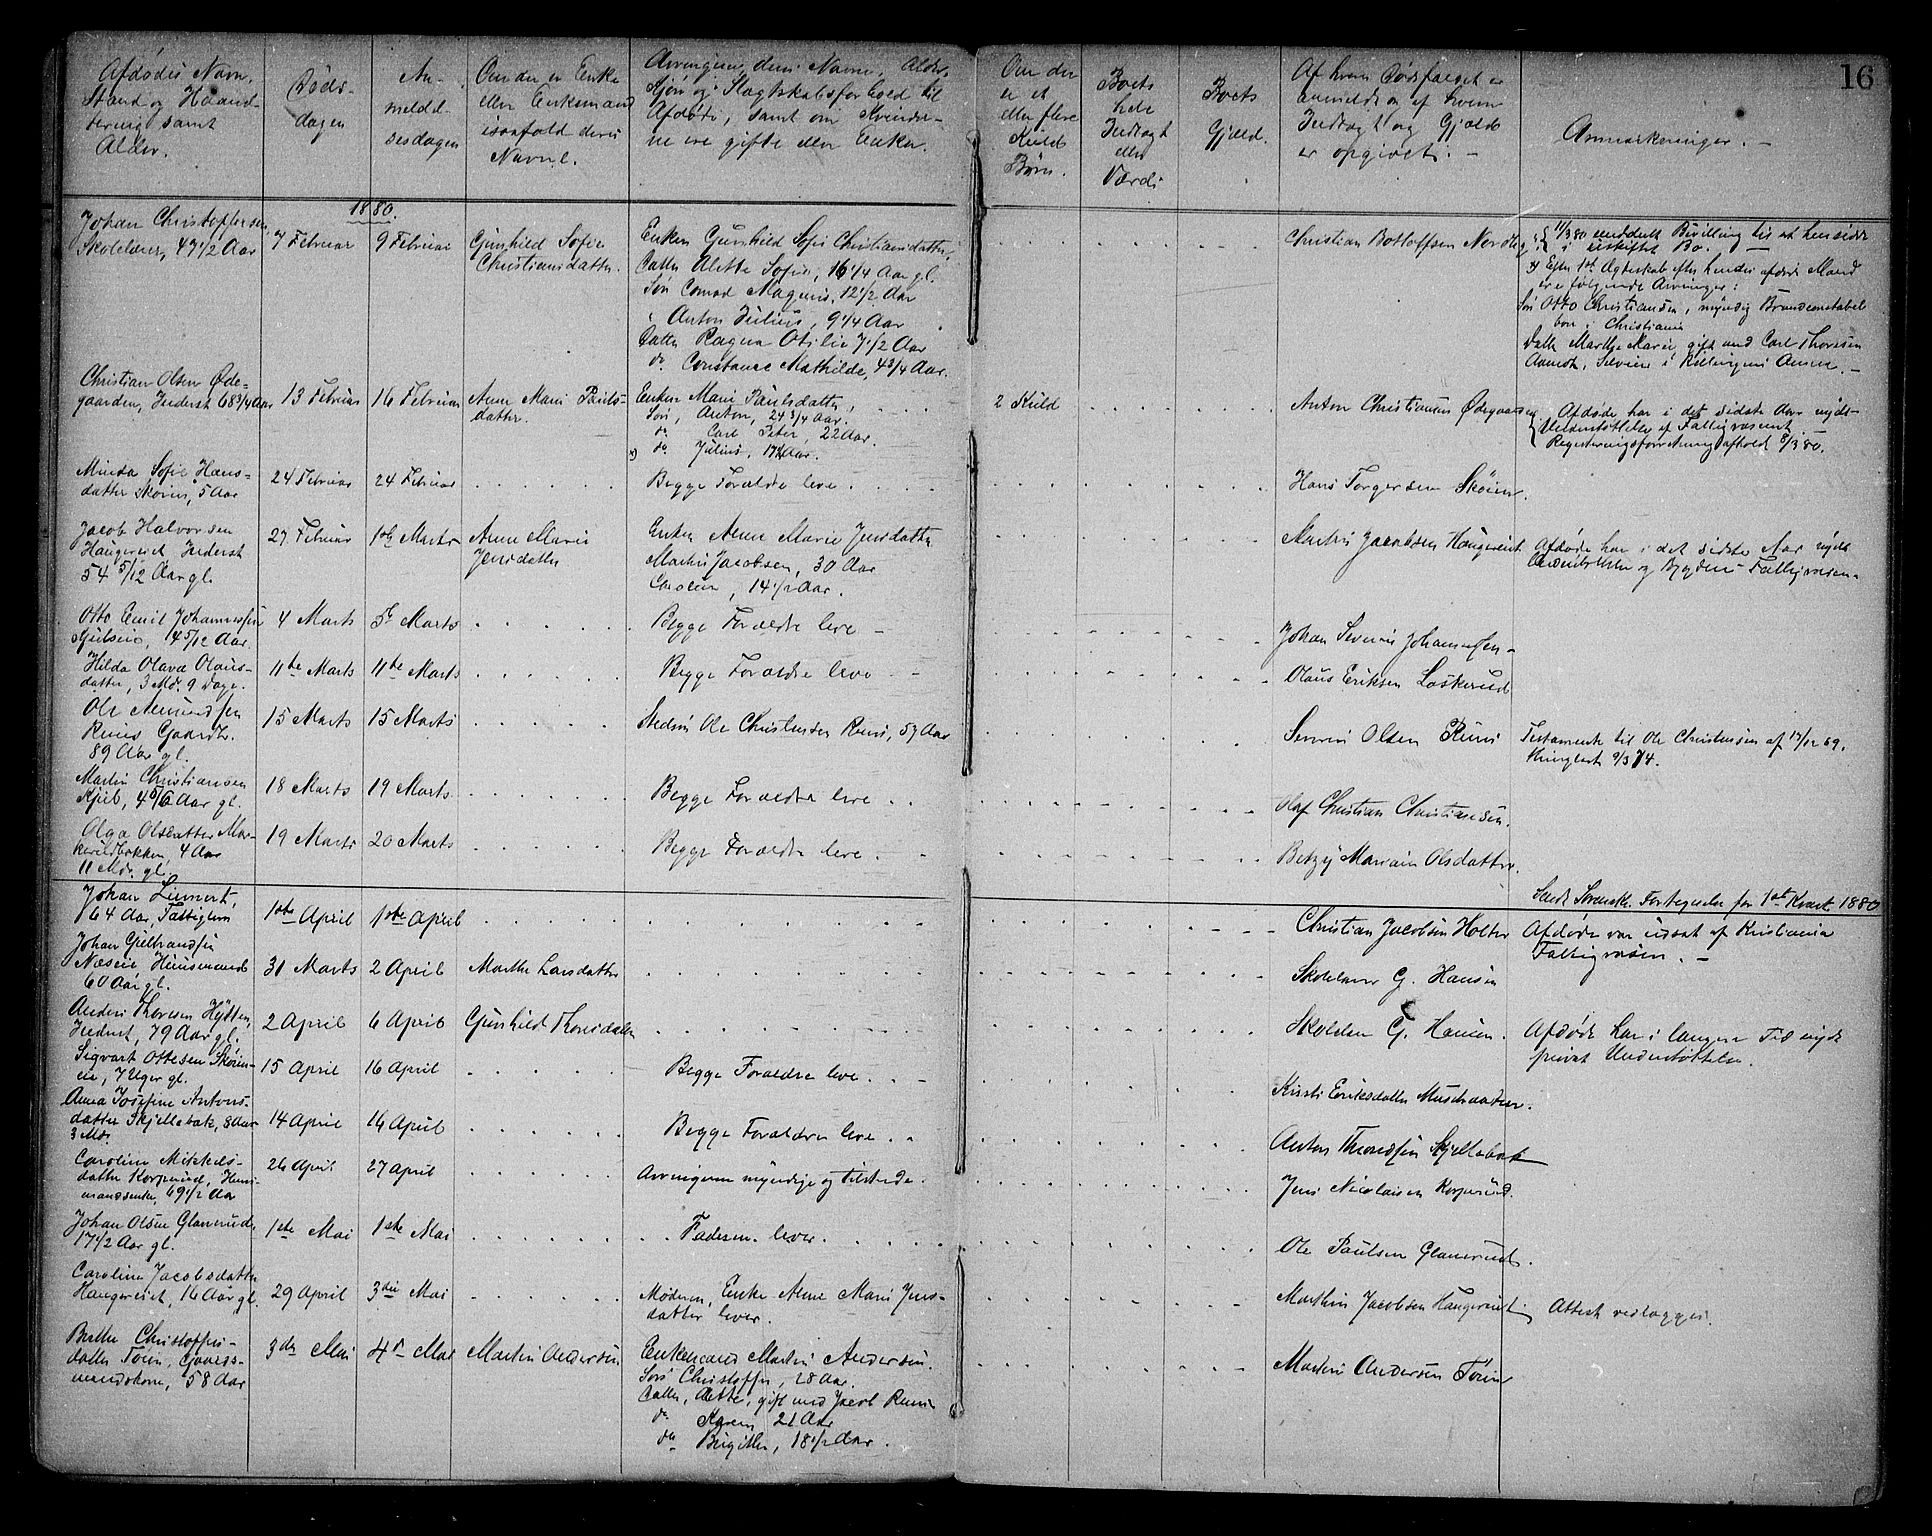 16
Afdødes Navn,
Stand og Haand-
tering samt
Alder.
Døds-
dagen
An-
meldel-
sesdagen
Om der er Enke
eller Enkemand
isaafald deres
Navne.
Arvingerne, deres Navne, Alder,
Kjøn og Slægtskabsforhold til
Afdøde, samt om Kvinder-
ne ere gifte eller Enker.
Om der
er et
eller flere
Kuld
Børn.
Boets
hele
Indtægt
eller
Værdi
Boets
Gjæld.
Af hvem Dødsfaldet er
anmeldt og af hvem
Indtægt og Gjæld
er opgivet. -
Anmærkninger. -
1880.
Johan Christophersen
Skolelærer, 47 1/2 Aar
7 Februar
9 Februar
Gunhild Sofie
Christiansdatter.
Enken Gunhild Sofie Christiansdatter,
Datter Alette Sofie, 16 1/4 Aar gl.
Søn Conrad Magnus, 12 1/2 Aar
" Anton Julius, 9 1/4 Aar
Datter Ragna Otilie 7 1/2 Aar
do. Constance Mathilde, 4 3/4 Aar.
Christian Botloffsen Nordby
11/3 80 meddelt Bevilling til at hensidde
i uskiftet Bo. -
x) Efter 1ste Ægteskab efter hendes afdøde Mand
ere følgende Arvinger:
Søn Otto Christiansen, myndig Brandconstabel
bor i Christiania
Datter Marthe Marie gift med Carl Thoresen
Christian Olsen Øde-
gaarden, Inderst 68 3/4 Aar
13 Februar
16 Februar
Anne Marie Pauls-
datter.
Enken Marie Paulsdatter,
Søn, Anton, 24 3/4 Aar.
do. Carl Peter, 22 Aar.
x) do. Julius, 17 1/2 Aar.
2 Kuld
Anton Christiansen Ødegaarden
Afdøde har i det sidste Aar nydt
Understøttelse af Fattigvæsenet. -
Registreringsforretning afholdt 8/3 80.
Minda Sofie Hans-
datter Skøien, 5 Aar
24 Februar
24 Februar
Begge Forældre leve
Hans Torgersen Skøien.
Jacob Halvorsen
Haugereiet Inderst
54 5/12 Aar gl.
27 Februar
1ste Marts
Anne Marie
Jensdatter
Enken Anne Marie Jensdatter
Martin Jacobsen, 30 Aar
Caroline, 14 1/2 Aar.
Martin Jacobsen Haugereiet
Afdøde har i det sidste Aar nydt
Understøttelse og Bygdens Fattigvæsen.
Otto Emil Johannesen
14 5/12 Aar.
4 Marts
5te Marts
Begge Forældre leve -
Johan Severin Johannesen -
Hilda Olava Olaus-
datter, 3 Md. 9 Dage.
11te Marts
11te Marts
Begge Forældre leve
Olaus Eriksen Laskerud
Ole Amundsen
Ruus Gaardbr.
89 Aar gl.
15 Marts
15 Marts
Stedsøn Ole Christensen Ruus, 57 Aar
Severin Olsen Ruus
Testamente til Ole Christensen af 17/12 69,
thinglæst 9/3 74.
Martin Christiansen
Kjus, 4 5/6 Aar gl.
18 Marts
19 Marts
Begge Forældre leve
Olaf Christian Christiansen.
Olga Olsdatter Mor-
kerildbakken, 4 Aar
11 Mdr. gl.
19 Marts
20 Marts
Begge Forældre leve.
Betzy Mariane Olsdatter.
Sendt Sorensk. Fortegnelse for 1ste Kvart. 1880
Johan Linnert,
64 Aar, Fattiglem
1ste April
1ste April
Christian Jacobsen Holter
Afdøde var udsat af Kristiania
Fattigvæsen. -
Johan Gulbrandsen
Næseie Huusmand
60 Aar gl.
31 Marts
2 April
Marthe Larsdatter
Skolelærer G. Hansen
Anders Thoresen Hytten,
Inderst, 79 Aar gl.
2 April
6 April
Gunhild Thoresdatter
Skolelær G. Hansen.
Afdøde har i længere Tid nydt
privat Understøttelse.
Sigvart Ottesen Skøien-
eie, 7 Uger gl.
15 April
16 April
Begge Forældre leve.
Kirsti Eriksdatter
Anna Josefine Antons-
datter Skjellebæk, 8 Aar
3 Md.
14 April
16 April
Begge Forældre leve.
Anton Thoresen Skjellebæk
Caroline Mikkels-
datter Korperud, Huus-
mandsenke 69 1/2 Aar
26 April
27 April
Arvingerne myndige og tilstede.
Jens Nicolaisen Korperud.
Johan Olsen Glanerud,
17 1/2 Aar gl.
1ste Mai
1ste Mai
Faderen lever.
Ole Paulsen Glanerud.
Caroline Jacobsdatter
Haugereiet, 14 Aar gl.
29 April
3die Mai
Moderen, Enke Anne Marie Jens-
datter lever.
Marthin Jacobsen Haugereiet
Attest vedlægges.
Berthe Christoffers-
datter Toien, Gaard-
mandskone, 58 Aar
3die Mai
4de Mai
Martin Andersen
Enkemand Martin Andersen.
Søn Christoffer, 28 Aar.
Datter, Alette, gift med Jacob Ruus
do. Karen, 21 Aar
do. Birgitte, 18 1/2 Aar.
Martin Andersen Toien